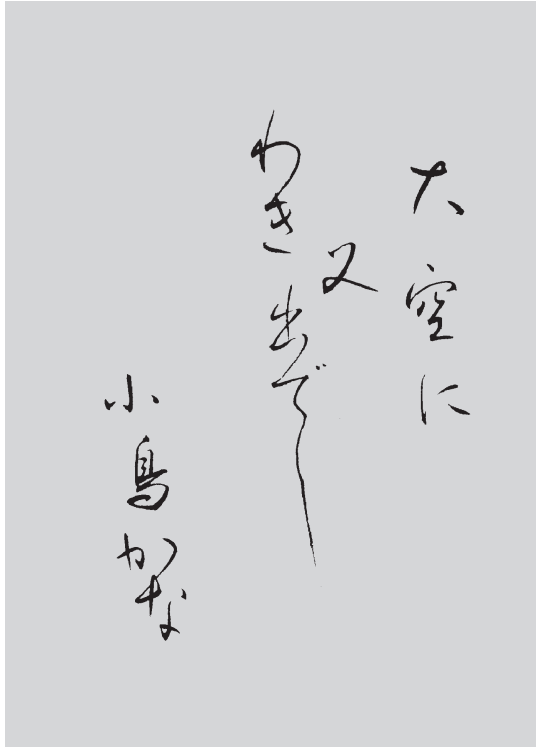 大空に
又
わき出でし
小鳥かな